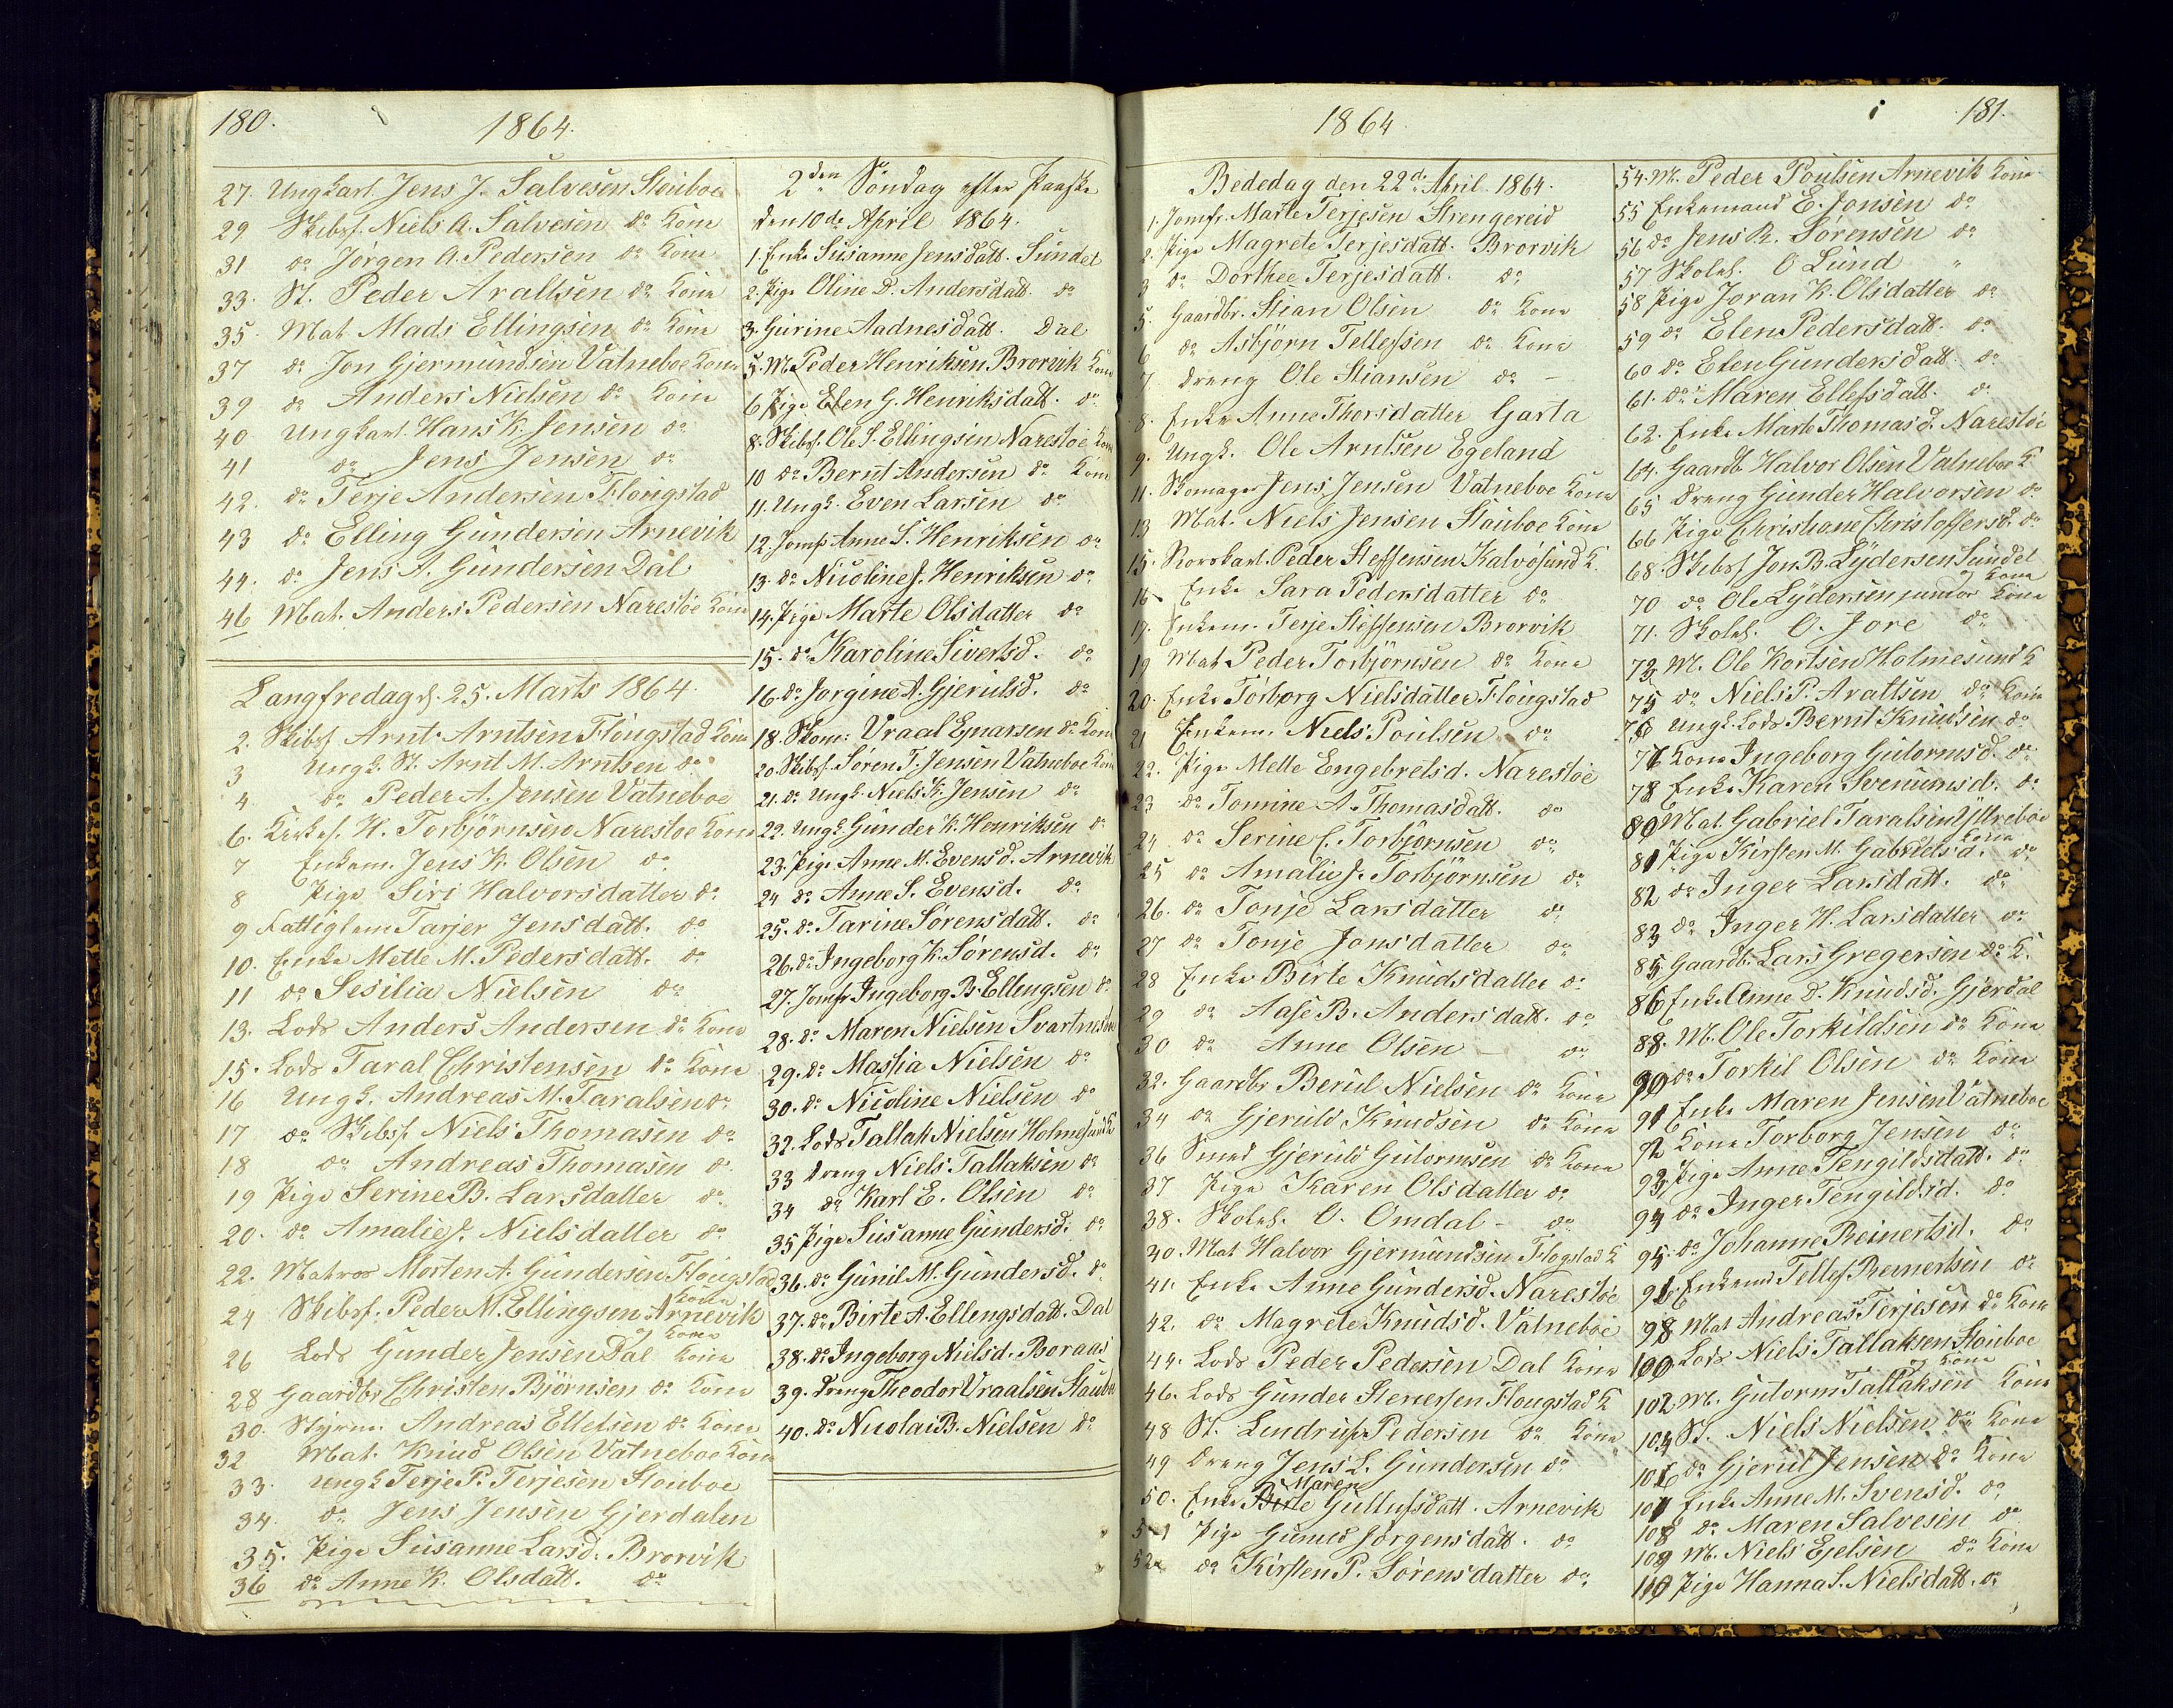 180.
1864.
27. Ungkarl Jens J. Salvesen Stouboe
29 Skibsf. Niels A. Salvesen do Kone
31 do Jørgen A. Pedersen do Kone
33. St. Peder Araltsen do Kone
35. Mat Mads Ellingsen do Kone
37 do Jon Gjermundsen Vatneboe Kone
39 do Anders Nielsen do Kone
40 Ungkarl Hans K. Jensen do
41 do Jens Jensen do
42. do Terje Andersen Flougstad
43 do Elling Gundersen Arnevik
44. do Jens A. Gundersen Dal
46 Mat. Anders Pedersen Narestoe Kone
Langfredag d. 25. Marts 1864.
2. Skibsf Arnt Arntsen Flougstad Kone
3 Ungk. St. Arnt M. Arntsen do
4. do Peder A. Jensen Vatneboe
6. Kirkes. H. Torbjørnsen Narestoe Kone
7 Enkem. Jens K. Olsen do
8 Pige Siri Halvorsdatter do
9 Fattiglem Tarjer Jensdatt. do
10. Enke Mette M. Pedersdatt. do
11 do Sesilia Nielsen do
13. Lods Anders Andersen do Kone
15. Lods Taral Christensen do Kone
16 Ungk. Andreas M. Taralsen do
17 do Skibsf. Niels Thomasen do
18 do Andreas Thomasen do
19 Pige Serine B. Larsdatter do
20. do Amalie J. Nielsdatter do
22. Matros Morten A. Gundersen Flougstad Kone
24 Skibsf. Peder M. Ellingsen Arnevik Kone
26 Lods Gunder Jensen Dal Kone
28 Gaardbr Christen Bjørnsen do Kone
30. Styrm. Andreas Ellefsen do Kone
32 Mat. Knud Olsen Vatneboe Kone
33. Ungk Terje P. Terjesen Stouboe
34. do Jens Jensen Gjerdalen
35. Pige Susanne Larsd. Brorvik
36 do Anne K. Olsdatt. do
2den Søndag efter Paaske
den 10de April 1864.
1. Enke Susanne Jensdatt. Sundet
2. Pige Oline D. Andersdatt. do
3. Gurine Aadnesdatt. Dal
5. M. Peder Henriksen Brorvik Kone
6 Pige Elen G. Henriksdatt. do
8. Skibsf. Ole S. Ellingsen Narestoe Kone
10 do Bernt Andersen do Kone
11. Ungk. Even Larsen do
12. Jomfr Anne S. Henriksen do
13. do Nicoline J. Henriksen do
14. Pige Marte Olsdatter do
15. do Karoline Sivertsd. do
16. do Jorgine A. Gjerulsd. do
18. Skom: Vraal Enarsen do Kone
20. Skibsf. Søren T. Jensen Vatneboe Kone
21. do Ungk. Niels K. Jensen do
22. Ungk. Gunder K. Henriksen do
23. Pige Anne M. Evensd. Arnevik
24 do Anne S. Evensd. do
25. do Tarine Sørensdatt. do
26. do Ingeborg K. Sørensd. do
27. Jomfr Ingeborg B. Ellengsen do
28. do Maren Nielsen Svartnes
29. do Massia Nielsen do
30. do Nicoline Nielsen do
32. Lods Tallak Nielsen Holmesund K
33 Dreng Niels Tallaksen do
34 do Karl E. Olsen do
35 Pige Susanne Gundersd. do
36. do Gunil M. Gundersd. do
37. do Birte A. Ellengsdatt. Dal
38. do Ingeborg Nielsd. Boraas
39. Dreng Theodor Vraalsen Stauboe
40. do Nicolai B. Nielsen do
181.
1864.
Bededag den 22de April 1864.
1. Jomfr. Marte Terjesen Strengereid
2. Pige Magrete Terjesdatt. Brorvik
3 do Dorthee Terjesdatt. do
5. Gaardbr. Stian Olsen do Kone
6 do Asbjørn Tellefsen do Kone
7 Dreng Ole Stiansen do
8. Enke Anne Thorsdatter Garta
9. Ungk. Ole Arntsen Egeland
11. Skomager Jens Jensen Vatneboe Kone
13 Mat. Niels Jensen Stauboe Kone
15. Skovkarl Peder Steffensen Kalvøsund K.
16 Enke Sara Pedersdatter do
17. Enkem. Terje Steffensen Brorvik
19 Mat Peder Torbjørnsen do Kone
20. Enke Torborg Nielsdatter Flougstad
21 Enkem. Niels Poulsen do
22. Pige Mette Engebretsd. Narestoe
23 do Tomine A. Thomasdatt. do
24 do Serine C. Torbjørnsen do
25 do Amalie J. Torbjørnsen do
26. do Tonje Larsdatter do
27 do Tonje Jonsdatter do
28 Enke Birte Knudsdatter do
29 do Aase B. Andersdatt. do
30 do Anne Olsen do
32. Gaardbr Berul Nielsen do Kone
34 do Gjeruld Knudsen do Kone
36 Smed Gjeruld Gutormsen do Kone
37 Pige Karen Olsdatter do
38. Skolel. O. Omdal do
40. Mat Halvor Gjermundsen Flogstad K
41. Enke Anne Gundersd. Narestoe
42. do Magrete Knudsd. Vatneboe
44. Lods Peder Pedersen Dal Kone
46. Lods Gunder Stenersen Flougstad K
48 St. Lindrup Pedersen do Kone
49 Dreng Jens L. Gundersen do
50. Enke Birte Maren Gullufsdatt. Arnevik
51 Pige Guned Jørgensdatt. do
52 do Kirsten P. Sørensdatter do
54. M. Peder Poulsen Arnevik Kone
55 Enkemand E. Jonsen do
56 do Jens K. Sørensen do
57 Skolel. O Lund "
58 Pige Joran K. Olsdatter do
59 do Elen Pedersdatt. do
60 do Elen Gundersdatt. do
61. do Maren Ellefsdatt. do
62. Enke Marte Thomasd. Narestoe
64. Gaardb. Halvor Olsen Vatneboe K
65 Dreng Gunder Halvorsen do
66 Pige Christiane Christoffersd. do
68. Skibsf Jon B. Lydersen Sundet Kone
70 do Ole Lydersen junior Kone
71. Skolel. O. Jore do
73 M. Ole Kortsen Holmesund K
75 do Niels P. Araltsen do Kone
76 Ungk. Lods Bernt Knudsen do
77 Kone Ingeborg Gutormsd. do
78 Enke Karen Svenumsd. do
80 Mat. Gabriel Taralsen Yttreboe Kone
81 Pige Kirsten M. Gabrielsd. do
82 do Inger Larsdatt. do
83 do Inger H. Larsdatter do
85 Gaardb. Lars Gregersen do K.
86 Enke Anne D. Knudsd. Gjerdal
88. M. Ole Torkildsen do Kone
90 do Torkil Olsen do Kone
91 Enke Maren Jensen Vatneboe
92 Kone Torborg Jensen do
93 Pige Anne Tengildsdatt. do
94 do Inger Tengildsd. do
95. do Johanne Reinertsd. do
96 Enkemd Tellef Reinertsen do
98 Mat Andreas Terjesen do Kone
100. Lods Niels Tallaksen Stouboe Kone
102. M. Gutorm Tallaksen Kone
104 St. Niels Nielsen do Kone
106 do Gjerul Jensen do Kone
107 Enke Anne M. Svensd. do
108 do Maren Salvesen do
109 M. Niels Ejelsen do Kone
110 Pige Hanna S. Nielsdatt. do